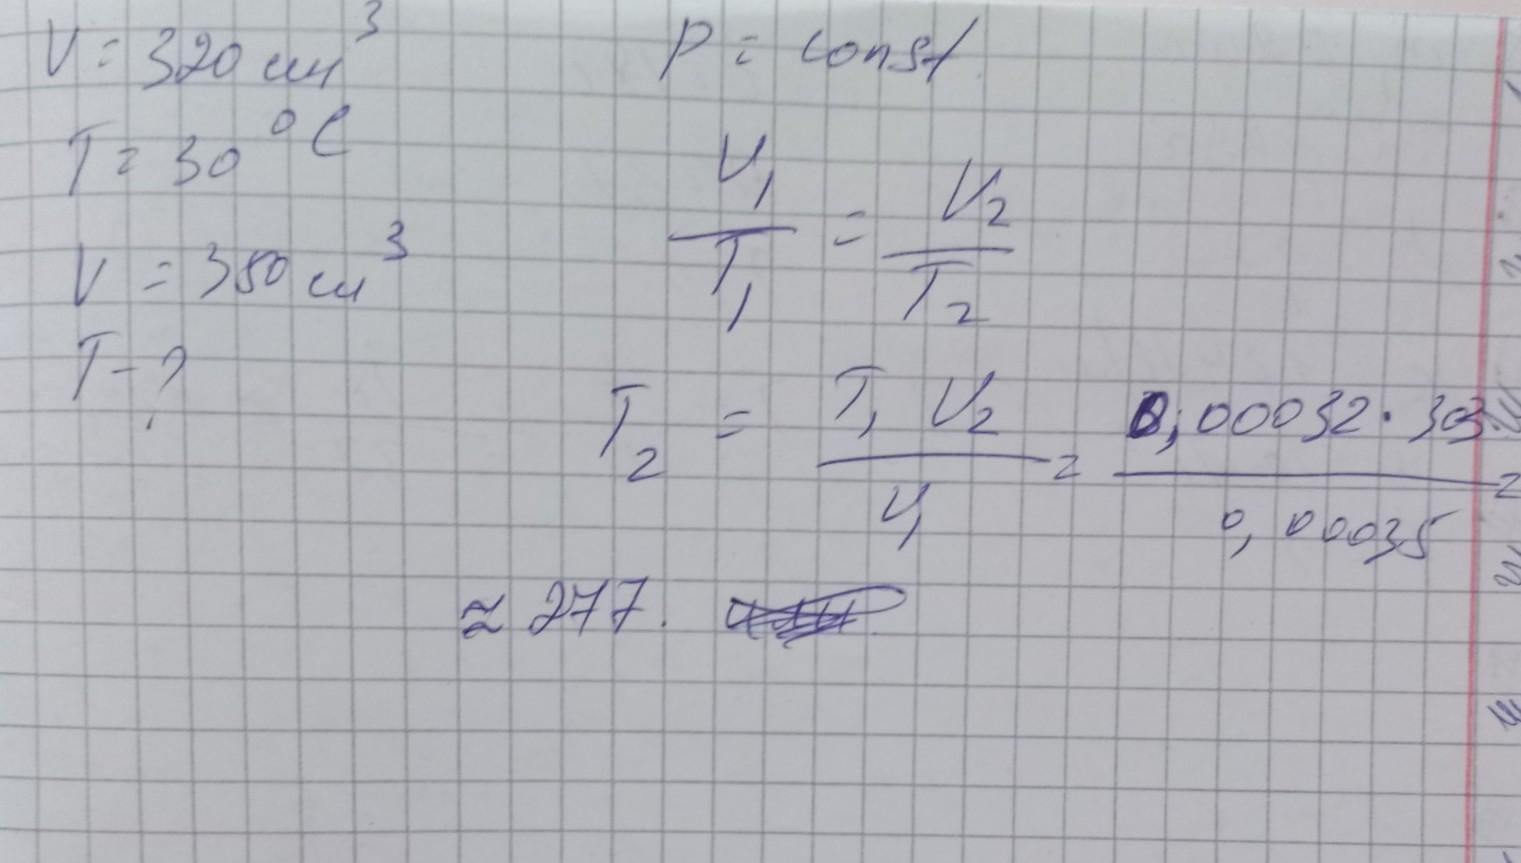 V = 320 см³
T = 30 °C
V = 350 см³
T - ?
P = const
V₁/T₁ = V₂/T₂
T₂ = T₁ V₂/V₁ = 0,00032 · 303/0,00035 =
≈ 277.